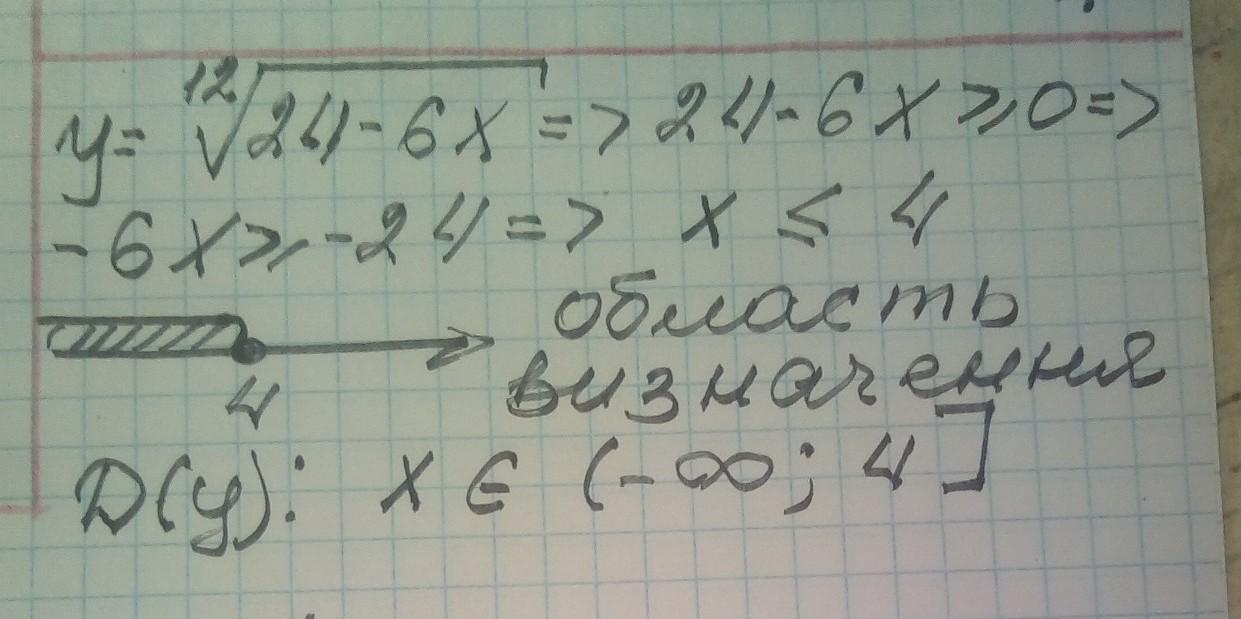 y = ¹²√24 - 6x => 24 - 6x ≥ 0 =>
- 6x ≥ - 24 => x ≤ 4
область
визначення
4
D(y): x ∈ (-∞; 4]